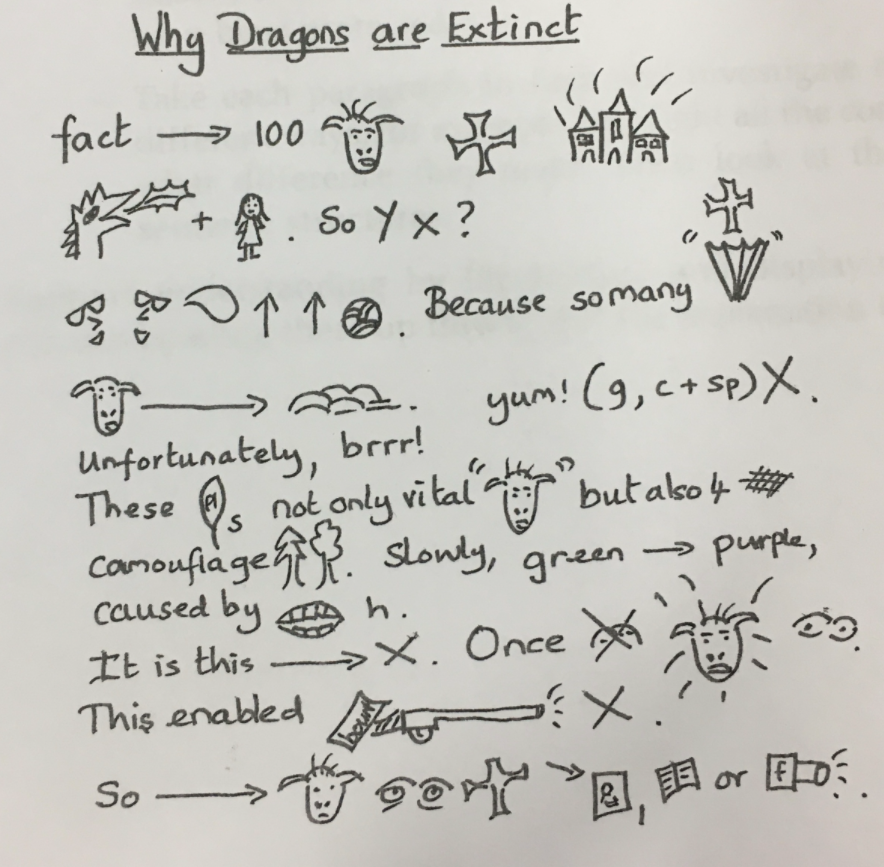 Why Dragons are Extinct
fact → 100
+ . So Y X ?
↑ ↑ . Because so many
→ . yum! (g, c + sp) X.
Unfortunately, brrr!
These Pl s not only vital " " but also 4
camouflage . Slowly, green → purple,
caused by h.
It is this → X. Once .
This enabled X.
So → → , or f .